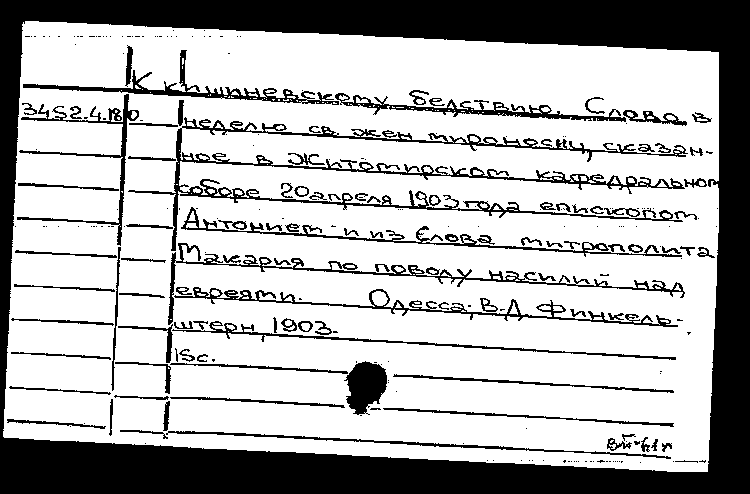 К кишиневскому бедствию. Слова в
34S2.4.180. неделю св. жен мироносиц, сказан-
ное в Житомирском кафедральном
соборе 20 апреля 1903 года епископом
Антонием и из слова митрополита
Макария по поводу насилий над
евреями. Одесса, В.Д. Финкель-
штерн, 1903.
15с.